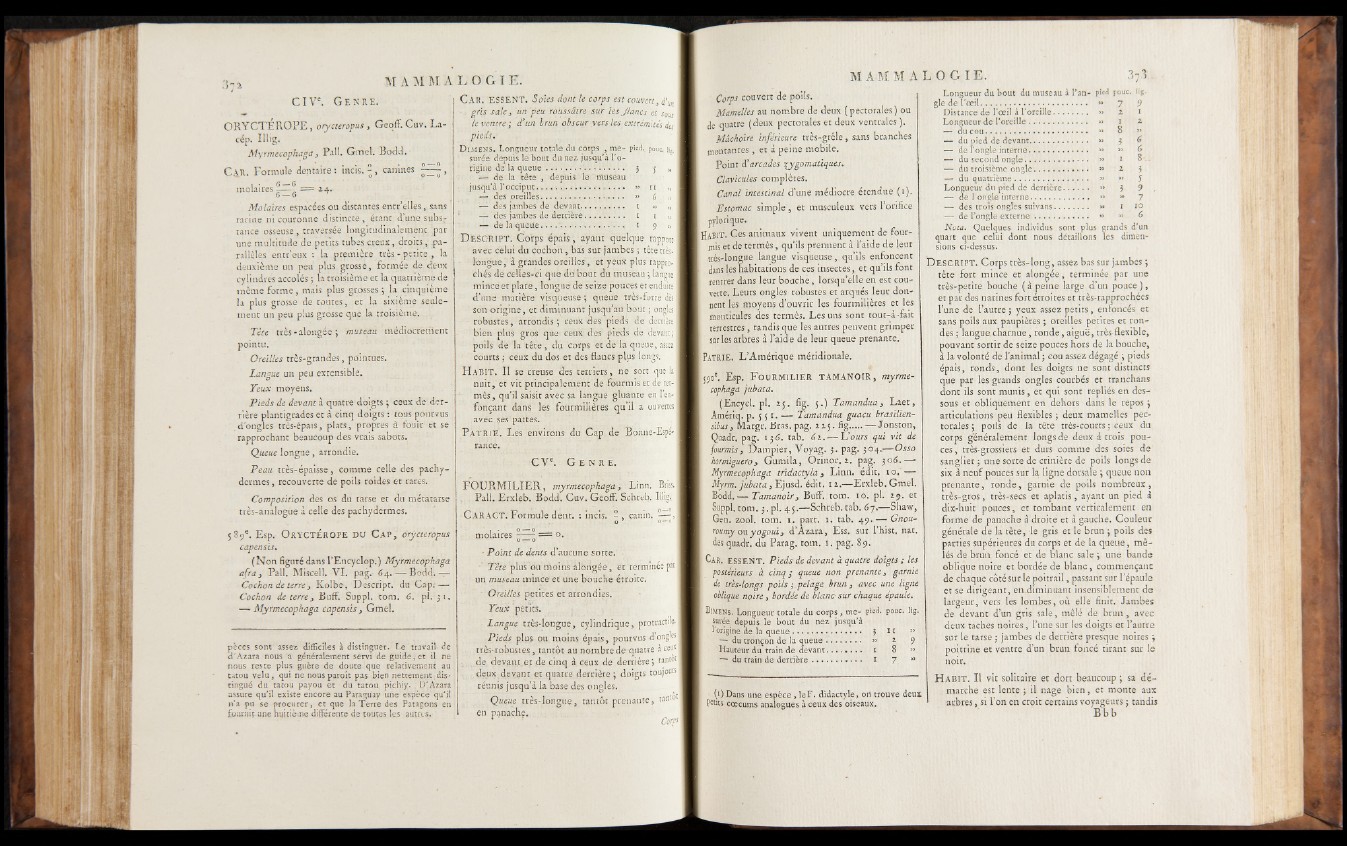 372
MAMMALOGIE.
CIVe. GENRE.
ORYCTÉROPE, orycteropus, Geoff. Cuv. La-
cép. Illig.
Myrmecophaga, Pall. Gmel. Bodd.
CAR. Formule dentaire : incis. 0/0, canines 0—0/0—0,
molaires 6—6/6—6 = 24.
Molaires espacées ou distantes entr'elles, sans
racine ni couronne distincte, étant d'une subs-
tance osseuse, traversée longitudinalement par
une multitude de petits tubes creux, droits, pa-
rallèles entr'eux : la première très-petite, la
deuxième un peu plus grosse, formée de deux
cylindres accolés ; la troisième et la quatrième de
même forme, mais plus grosses ; la cinquième
la plus grosse de toutes, et la sixième seule-
ment un peu plus grosse que la troisième.
Tête très-alongée ; museau médiocrement
pointu.
Oreilles très-grandes, pointues.
Langue un peu extensible.
Yeux moyens.
Pieds de devant à quatre doigts ; ceux de der-
rière plantigrades et à cinq doigts : tous pourvus
d'ongles très-épais, plats, propres à fouir et se
rapprochant beaucoup des vrais sabots.
Queue longue, arrondie.
Peau très-épaisse, comme celle des pachy-
dermes, recouverte de poils roides et rares.
Composition des os du tarse et du métatarse
très-analogue à celle des pachydermes.
589e. Esp. ORYCTÉROPE DU CAP, orycteropus
capensis.
(Non figuré dans l'Encyclop.) Myrmecophaga
afra, Pall. Miscell. VI. pag. 64. — Bodd. —
Cochon de terre, Kolbe, Descript. du Cap. —
Cochon de terre, Buff. Suppl. tom. 6. pl. 31.
— Myrmecophaga capensis, Gmel.
pèces sont assez difficiles à distinguer. Le travail de
d'Azara nous a généralement servi de guide, et il ne
nous reste plus guère de doute que relativement au
tatou velu, qui ne nous paroît pas bien nettement dis-
tingué du tatou payou et du tatou pichiy. D'Azara
assure qu'il existe encore au Paraguay une espèce qu'il
n'a pu se procurer, et que la Terre des Patagons en
fournit une huitième différente de toutes les autres.
CAR. ESSENT. Soies dont le corps est couvert, d'un
gris sale, un peu roussâtre sur les flancs et sous
le ventre ; d'un brun obscur vers les extrémités des
pieds.
DIMENS. Longueur totale du corps, me- pied. pouc. lig.
surée depuis le bout du nez jusqu'à l'o-
rigine de la queue . . . . . 3 5 »
— de la tête, depuis le museau
jusqu'à l'occiput . . . . . » 11 »
— des oreilles . . . . . » 6 »
— des jambes de devant . . . . . 1 » »
— des jambes de derrière . . . . . 1 1 »
— de la queue . . . . . 1 9 »
DESCRIPT. Corps épais, ayant quelque rapport
avec celui du cochon, bas sur jambes ; tête très-
longue, à grandes oreilles, et yeux plus rappro-
chés de celles-ci que du bout du museau ; langue
mince et plate, longue de seize pouces et enduite
d'une matière visqueuse ; queue très-forte dès
son origine, et diminuant jusqu'au bout ; ongles
robustes, arrondis ; ceux des pieds de derrière
bien plus gros que ceux des pieds de devant ;
poils de la tête, du corps et de la queue, assez
courts : ceux du dos et des flancs plus longs.
HABIT. Il se creuse des terriers, ne sort que la
nuit, et vit principalement de fourmis et de ter-
mès, qu'il saisit avec sa langue gluante en l'en-
fonçant dans les fourmilières qu'il a ouvertes
avec ses pattes.
PATRIE. Les environs du Cap de Bonne-Espé-
rance.
CVe. GENRE.
FOURMILIER, myrmecophaga, Linn. Briss.
Pall. Erxleb. Bodd. Cuv. Geoff. Schreb. Illig.
CARACT. Formule dent. : incis. 0/0, canin. 0—0/0—0,
molaires 0—0/0—0 = 0.
Point de dents d'aucune sorte.
Tête plus ou moins alongée, et terminée par
un museau mince et une bouche étroite.
Oreilles petites et arrondies.
Yeux petits.
Langue très-longue, cylindrique, protractile.
Pieds plus ou moins épais, pourvus d'ongles
très-robustes, tantôt au nombre de quatre à ceux
de devant et de cinq à ceux de derrière ; tantôt
deux devant et quatre derrière ; doigts toujours
réunis jusqu'à la base des ongles.
Queue très-longue, tantôt prenante, tantôt
en panache.
Corps
MAMMALOGIE.
373
Corps couvert de poils.
Mamelles au nombre de deux (pectorales) ou
de quatre (deux pectorales et deux ventrales).
Mâchoire inférieure très-grêle, sans branches
montantes, et à peine mobile.
Point d'arcades zygomatiques.
Clavicules complètes.
Canal intestinal d'une médiocre étendue (1).
Estomac simple, et musculeux vers l'orifice
pylorique.
HABIT. Ces animaux vivent uniquement de four-
mis et de termès, qu'ils prennent à l'aide de leur
très-longue langue visqueuse, qu'ils enfoncent
dans les habitations de ces insectes, et qu'ils font
rentrer dans leur bouche, lorsqu'elle en est cou-
verte. Leurs ongles robustes et arqués leur don-
nent les moyens d'ouvrir les fourmilières et les
monticules des termès. Les uns sont tout-à-fait
terrestres, tandis que les autres peuvent grimper
sur les arbres à l'aide de leur queue prenante.
PATRIE. L'Amérique méridionale.
590e. Esp. FOURMILIER TAMANOIR, myrme-
cophaga jubata.
(Encycl. pl. 25. fig. 5.) Tamandua, Laet,
Amériq. p. 551. — Tamandua guacu brasilien-
sibus, Margr. Bras. pag. 225. fig..... — Jonston,
Quadr. pag. 136. tab. 62. — L'ours qui vit de
fourmis, Dampier, Voyag. 3. pag. 304. — Osso
hormiguero, Gumila, Orinoc. 2. pag. 306. —
Myrmecophaga tridactyla, Linn. édit. 10. —
Myrm. jubata, Ejusd. édit. 12. — Erxleb. Gmel.
Bodd. — Tamanoir, Buff. tom. 10. pl. 29. et
Suppl. tom. 3. pl. 45. — Schreb. tab. 67. — Shaw,
Gen. zool. tom. 1. part. 1. tab. 49. — Gnou-
roumy ou yogoui, d'Azara, Ess. sur l'hist. nat.
des quadr. du Parag. tom. 1. pag. 89.
CAR. ESSENT. Pieds de devant à quatre doigts ; les
postérieurs à cinq ; queue non prenante, garnie
de très-longs poils ; pelage brun, avec une ligne
oblique noire, bordée de blanc sur chaque épaule.
DIMENS. Longueur totale du corps, me- pied. pouc. lig.
surée depuis le bout du nez jusqu'à
l'origine de la queue . . . . . 3 11 »
— du tronçon de la queue . . . . . » 2 9
Hauteur du train de devant . . . . . 1 8 »
— du train de derrière . . . . . 1 7 »
(1) Dans une espèce, le F. didactyle, on trouve deux
petits cœcums analogues à ceux des oiseaux.
Longueur du bout du museau à l'an- pied pouc. lig.
gle de l'œil . . . . . » 7 9
Distance de l'œil à l'oreille . . . . . » 2 1
Longueur de l'oreille . . . . . » 1 2
— du cou . . . . . » 8 »
— du pied de devant . . . . . » 5 6
— de l'ongle interne . . . . . » » 6
— du second ongle . . . . . » 1 8
— du troisième ongle . . . . . » 2 3
— du quatrième . . . . . » » 5
Longueur du pied de derrière . . . . . » 3 9
— de l'ongle interne . . . . . » » 7
— des trois ongles suivans . . . . . » 1 10
— de l'ongle externe . . . . . » » 6
Nota. Quelques individus sont plus grands d'un
quart que celui dont nous détaillons les dimen-
sions ci-dessus.
DESCRIPT. Corps très-long, assez bas sur jambes ;
tête fort mince et alongée, terminée par une
très-petite bouche (à peine large d'un pouce),
et par des narines fort étroites et très-rapprochées
l'une de l'autre ; yeux assez petits, enfoncés et
sans poils aux paupières ; oreilles petites et ron-
des ; langue charnue, ronde, aiguë, très flexible,
pouvant sortir de seize pouces hors de la bouche,
à la volonté de l'animal ; cou assez dégagé ; pieds
épais, ronds, dont les doigts ne sont distincts
que par les grands ongles courbés et tranchans
dont ils sont munis, et qui sont repliés en des-
sous et obliquement en dehors dans le repos ;
articulations peu flexibles ; deux mamelles pec-
torales ; poils de la tête très-courts ; ceux du
corps généralement longs de deux à trois pou-
ces, très-grossiers et durs comme des soies de
sanglier ; une sorte de crinière de poils longs de
six à neuf pouces sur la ligne dorsale ; queue non
prenante, ronde, garnie de poils nombreux,
très-gros, très-secs et aplatis, ayant un pied à
dix-huit pouces, et tombant verticalement en
forme de panache à droite et à gauche. Couleur
générale de la tête, le gris et le brun ; poils des
parties supérieures du corps et de la queue, mê-
lés de brun foncé et de blanc sale ; une bande
oblique noire et bordée de blanc, commençant
de chaque côté sur le poitrail, passant sur l'épaule
et se dirigeant, en diminuant insensiblement de
largeur, vers les lombes, où elle finit. Jambes
de devant d'un gris sale, mêlé de brun, avec
deux taches noires, l'une sur les doigts et l'autre
sur le tarse ; jambes de derrière presque noires ;
poitrine et ventre d'un brun foncé tirant sur le
noir.
HABIT. Il vit solitaire et dort beaucoup ; sa dé-
marche est lente ; il nage bien, et monte aux
arbres, si l'on en croit certains voyageurs ; tandis
Bbb